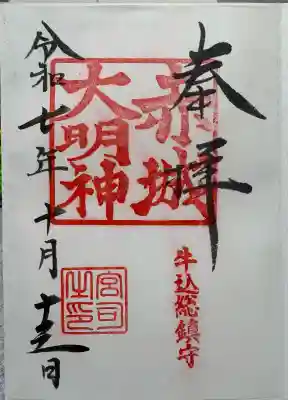 奉拝
赤城
大明神
牛込総鎮守
宮司
之印
令和七年十月十三日